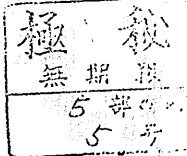 極秘
無期限
5部の内
5号